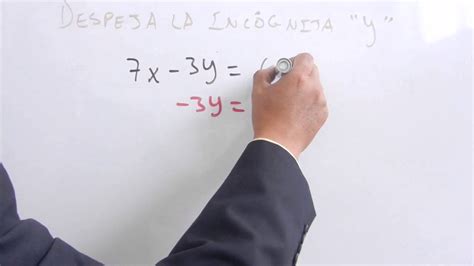 DESPEJA LA INCÓGNITA "y"
7x - 3y =
-3y =